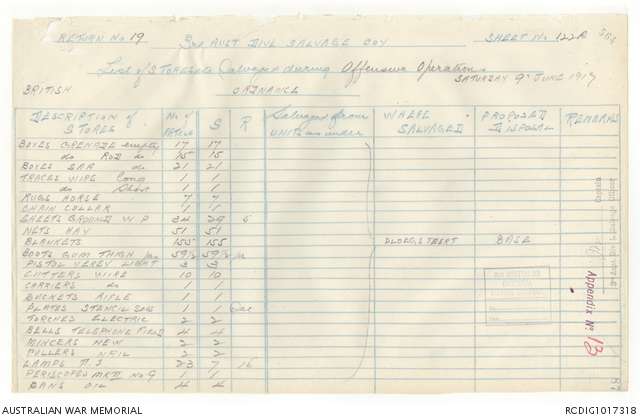 RETURN No 19 3RD AUST DIVL SALVAGE COY SHEET No 122A
List of STORES etc Salvaged during Offensive Operation SATURDAY 9th JUNE 1917
BRITISH ORDNANCE
DESCRIPTION of STORES No of S R Salvaged from UNITS as under WHERE SALVAGED PROPOSED DISPOSAL REMARKS
BOXES GRENADE empty 17 17
do ROD do 15 15
BOXES SAA do 21 21
TRACES WIRE Long 1 1
do Short 1 1
RUGS HORSE 7 7
CHAIN COLLAR 1 1
SHEETS GROUND W P 34 29 5
NETS HAY 51 51
BLANKETS 155 155 PLOEGSTEERT BASE
BOOTS GUM THIGH prs 59½ 59½
PISTOL VEREY LIGHT 3 3
CUTTERS WIRE 10 10
CARRIERS do 1 1
BUCKETS RIFLE 1 1
PLATES STENCIL 1 1
TORCHES ELECTRIC 2 2
BELLS TELEPHONE FIELD 4 4
MINCERS NEW 2 2
PULLERS NAIL 2 2
LAMPS 23 7 16
PERISCOPES MK No 9 1 1
CANS OIL 4 4
Appendix No 13
AUSTRALIAN WAR MEMORIAL RCDIG1017318